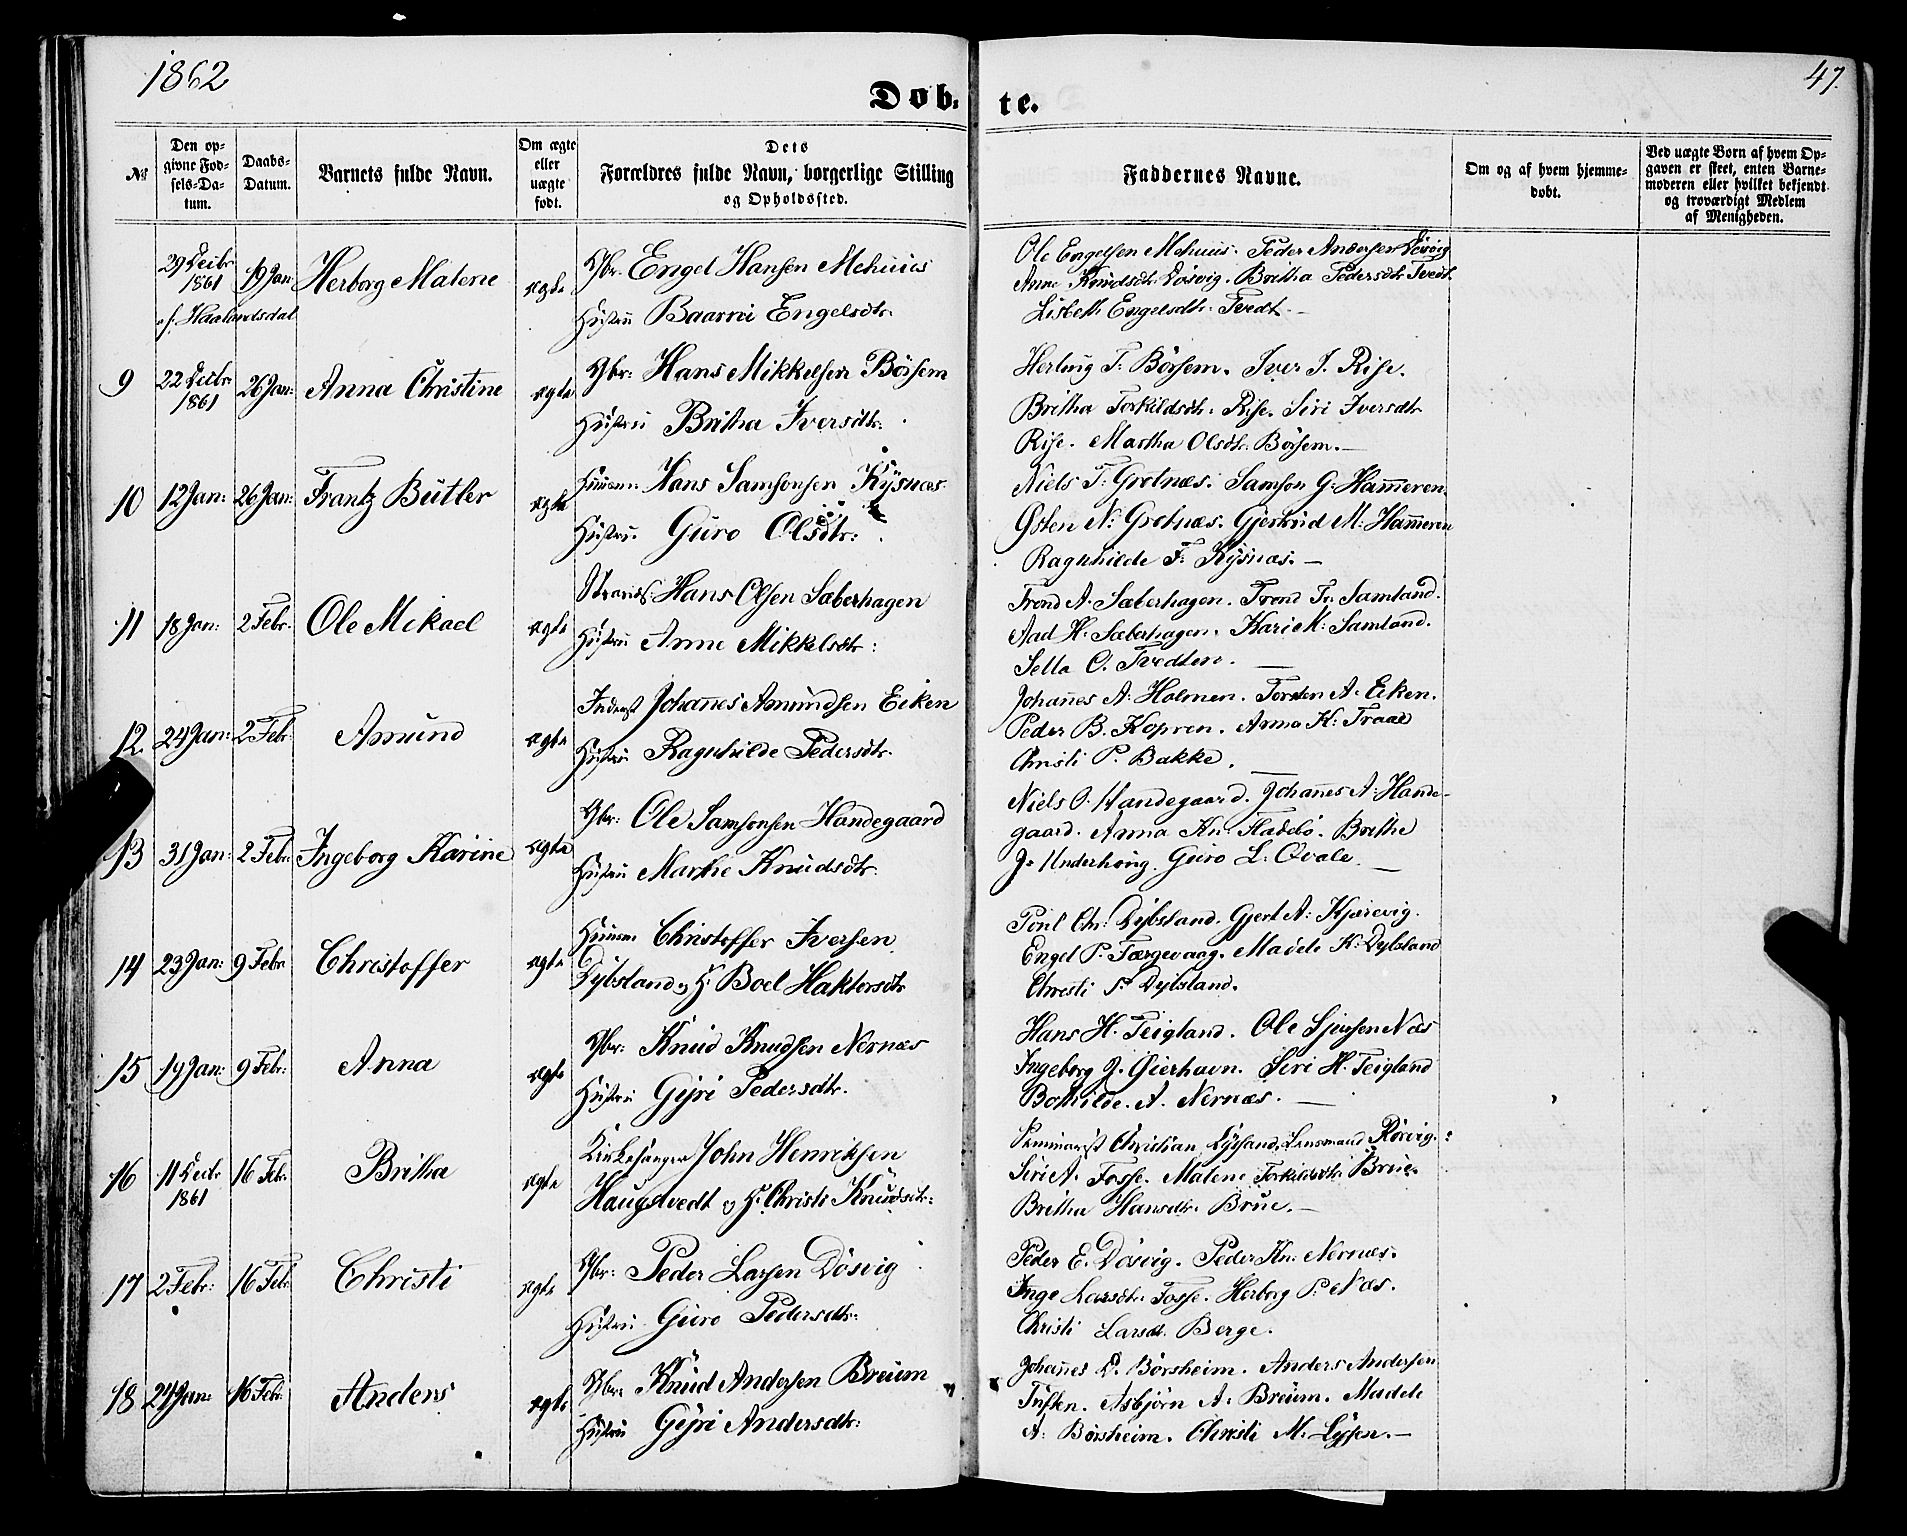 1862
47.
Døb- te.
№
Den opgivne Fødsels-Datum.
Daabs-Datum.
Barnets fulde Navn.
Om ægte eller uægte født.
Dets Forældres fulde Navn, borgerlige Stilling og Opholdssted.
Faddernes Navne.
Om og af hvem hjemmedøbt.
Ved uægte Børn af hvem Opgaven er skeet, enten Barnemoderen eller hvilket bekjendt og troværdigt Medlem af Menigheden.
29 Decbr 1861 19 Jan: Herborg Malene ægte Gbr. Engel Hansen Mehuus
Hustru Baarni Engelsdtr.
af Haalandsdal
Ole Engelsen Mehuus. Peder Andersen Døsvig
Anne Knudsdtr. Døsvig. Britha Pedersdtr. Tvedt.
Lisbeth Engelsdtr. Tvedt. —
9 22 Decbr 1861 26 Jan: Anna Christine ægte Gbr: Hans Mikkelsen Börsem
Hustru Britha Iversdtr.
Herlaug T. Börsem. Iver J. Rise.
Britha Torkildsdtr. Rise. Siri Iversdtr.
Rise. Martha Olsdtr. Börsem. —
10 12 Jan: 26 Jan: Frantz Bütler ægte Husmn Hans Samsonsen Kysnæs
Hustru Guro Olsdtr:
Niels T. Grotnæs. Samson G. Hammeren.
Østen N. Grotnæs. Gjertrud M. Hammeren
Ragnhilde F. Kysnæs. —
11 18 Jan: 2 Febr. Ole Mikael ægte Hans Olsen Sæberhagen
Hustru Anne Mikkelsdtr:
Trond A. Sæberhagen. Trond Tr. Samland.
Aad H. Sæberhagen. Kari M. Samland.
Sella O. Tvedten. —
12 24 Jan: 2 Febr: Amund ægte Inderst Johannes Amundsen Eiken
Hustru Ragnhilde Pedersdtr.
Johannes A. Holmen. Torsten A. Eiken.
Peder B. Kopren. Anna K. Traae
Christi P. Bakke. —
13 31 Jan: 2 Febr Ingeborg Karine ægte Gbr: Ole Samsonsen Handegaard
Hustru Marthe Knudsdtr.
Niels O. Handegaard. Johannes A. Hande-
gaard. Anna Kn. Fladebø. Brithe
J. Underhaug. Guro L. Qvale. —
14 23 Jan: 9 Febr Christoffer ægte Husmn Christoffer Iversen
Dybsland og H. Boel Haktorsdtr
Poul Chr. Dybsland. Gjert A. Kjærevig.
Engel P. Færgevaag. Madele K. Dybsland
Christi P. Dybsland.
15 19 Jan: 9 Febr: Anna ægte Gbr: Knud Knudsen Nernæs
Hustru Gyri Pedersdtr.
Hans H. Teigland. Ole Sjursen Næs
Ingeborg J. Gierhavn. Siri H. Teigland
Bothilde A. Nernæs. —
16 11 Decbr 1861 16 Febr. Britha ægte Kirkesanger John Henriksen
Haugstvedt og H. Christi Knudsdtr:
Seminarist Christian Lysand. Lensmand Rörvig.
Siri A. Fosse. Malene Torkildsdtr. Brue.
Britha Hansdtr. Brue. —
17 2 Febr: 16 Febr Christi ægte Gbr: Peder Larsen Dösvig
Hustru Guro Pedersdtr:
Peder E. Dösvig. Peder Kn. Nernæs.
Inge Larsdtr. Fosse. Herborg P. Næs.
Christi Larsdt. Berge.
18 24 Jan: 16 Febr: Anders ægte Gbr: Knud Andersen Breum
Hustru Gyri Andersdtr:
Johannes D. Börsheim. Anders Andersen
Tuften. Asbjörn A. Breum. Madele
A. Börsheim. Christi M. Lyssen. —